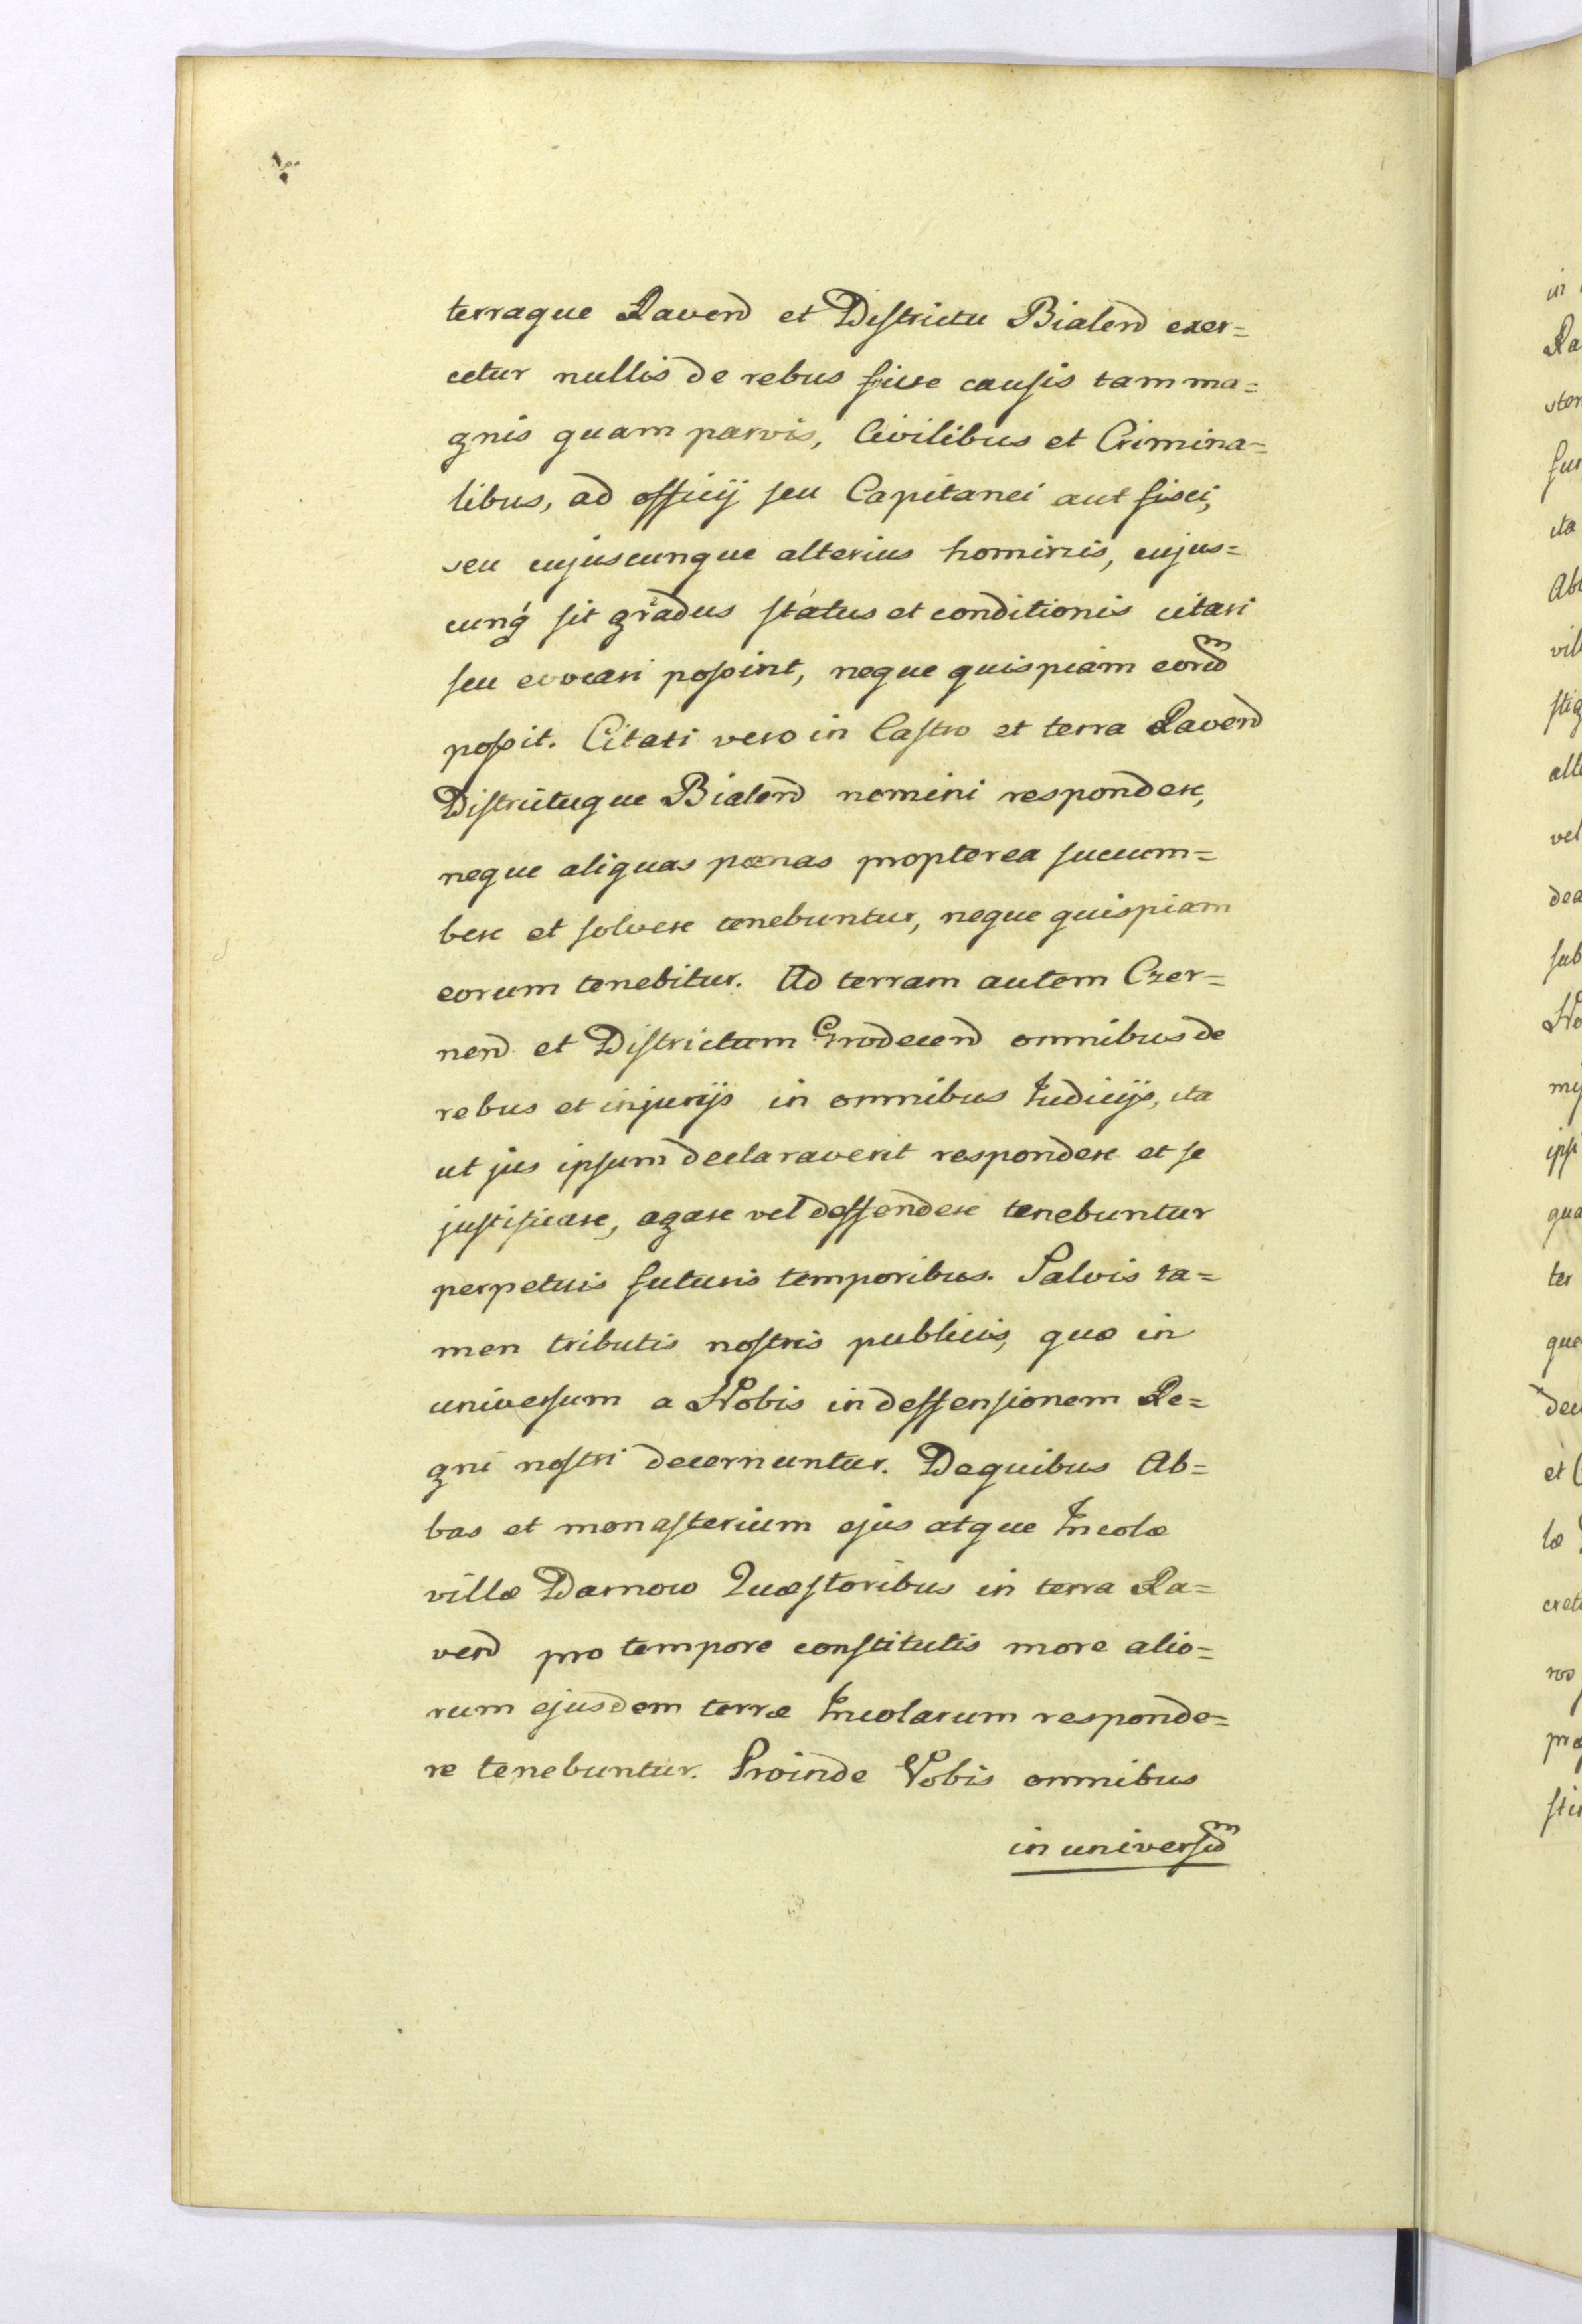 terraque Raven̄ et Districtu Bialen̄ exer=
cetur nullis de rebus sive causis tam ma=
gnis quam parvis, Civilibus et Crimina=
libus, ad officij seu Capitanei aut fisci,
seu cujuscunque alterius hominis, cujus=
cunq́ sit gradus status et conditionis citari
seu evocari possint, neque quispiam eorūm
possit. Citati vero in Castro et terra Raven̄
Districtuque Bialen̄ nemini respondere,
neque aliquas pœnas propterea succum=
bere et solvere tenebuntur, neque quispiam
eorum tenebitur. Ad terram autem Czer=
nen̄ et Districtum Grodecen̄ omnibus de
rebus et injurijs in omnibus Judicijs, ita
ut jus ipsum declaraverit respondere et se
justificare, agare vel deffendere tenebuntur
perpetuis futuris temporibus. Salvis ta=
men tributis nostris publicis, quæ in
universum a Nobis in deffensionem Re=
gni nostri decernuntur. De quibus Ab=
bas et monasterium ejus atque Incolæ
villæ Damow Quæstoribus in terra Ra=
ven̄ pro tempore constitutis more alio=
rum ejusdem terræ Incolarum responde=
re tenebuntur. Proinde Vobis omnibus
in universūm